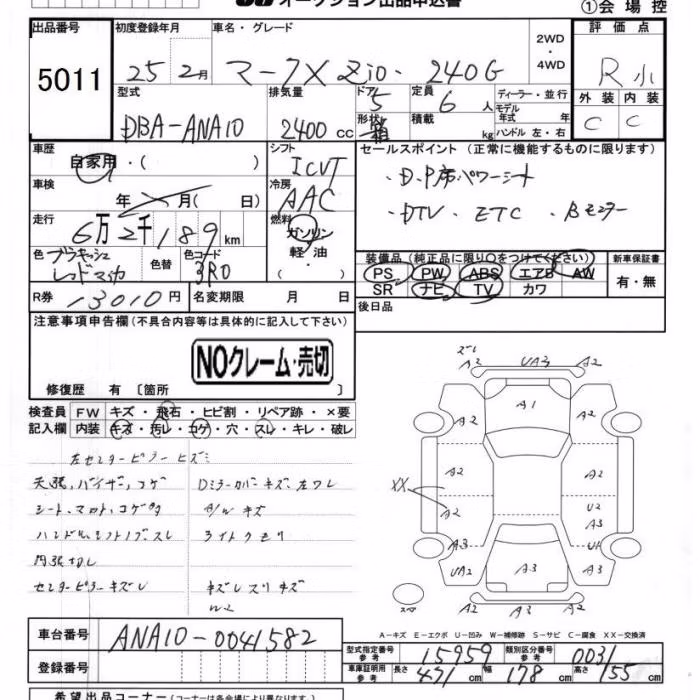 オークション出品申込書
①会場控
出品番号 初度登録年月 車名・グレード 2WD ・ 4WD 評価点
5011 25 2月 マークX Zio・ 240G R小
型式 排気量 ドア 定員 ディーラー・並行 外装 内装
DBA-ANA10 2400cc 5 6人 モデル 年式 年 C C
形状 箱 積載 kg ハンドル 左・右
車歴 シフト セールスポイント (正常に機能するものに限ります)
自家用・( ) ICVT
車検 冷房 ・D.P席パワーシート
年 月( 日) AAC ・DTV . ETC . Bモニター
走行 燃料
6万2千189km ガソリン 軽・油 ・( )
色 ブラキッシュレッドマイカ 色替 色コード 3R0
装備品 (純正品に限り○をつけてください) 新車保証書
PS PW ABS エアB AW 有・無
SR ナビ TV カワ
R券 13010円 名変期限 月 日 後日品
注意事項申告欄(不具合内容等は具体的に記入して下さい)
NOクレーム・売切
修復歴 有 〔箇所 〕
検査員 FW キズ・飛石・ヒビ割・リペア跡・×要
記入欄 内装 キズ・汚レ・コゲ・穴・スレ・キレ・破レ
左センターピラーヒズミ
天張,バイザー,コゲ Dミラーカバーキズ,左ワレ
シート,マット,コゲ穴 A/Wキズ
ハンドル,シフトノブ,スレ ライトクモリ
内張切レ
センターピラーキズレ キズレスリキズ
W2
A2 UA3 A2
A2 A1
A2 A2
XX A2 U2
A3
A3 U1
UA2 A3 A3
A2 A2
A-キズ E-エクボ U-凹み W-補修跡 S-サビ C-腐食 XX-交換済
車台番号 ANA10-0041582
型式指定番号 参考 15959 類別区分番号 参考 0031
登録番号 車庫証明用 参考 長さ 471cm 幅 178cm 高さ 155cm
希望出品コーナー (コーナーは各会場により